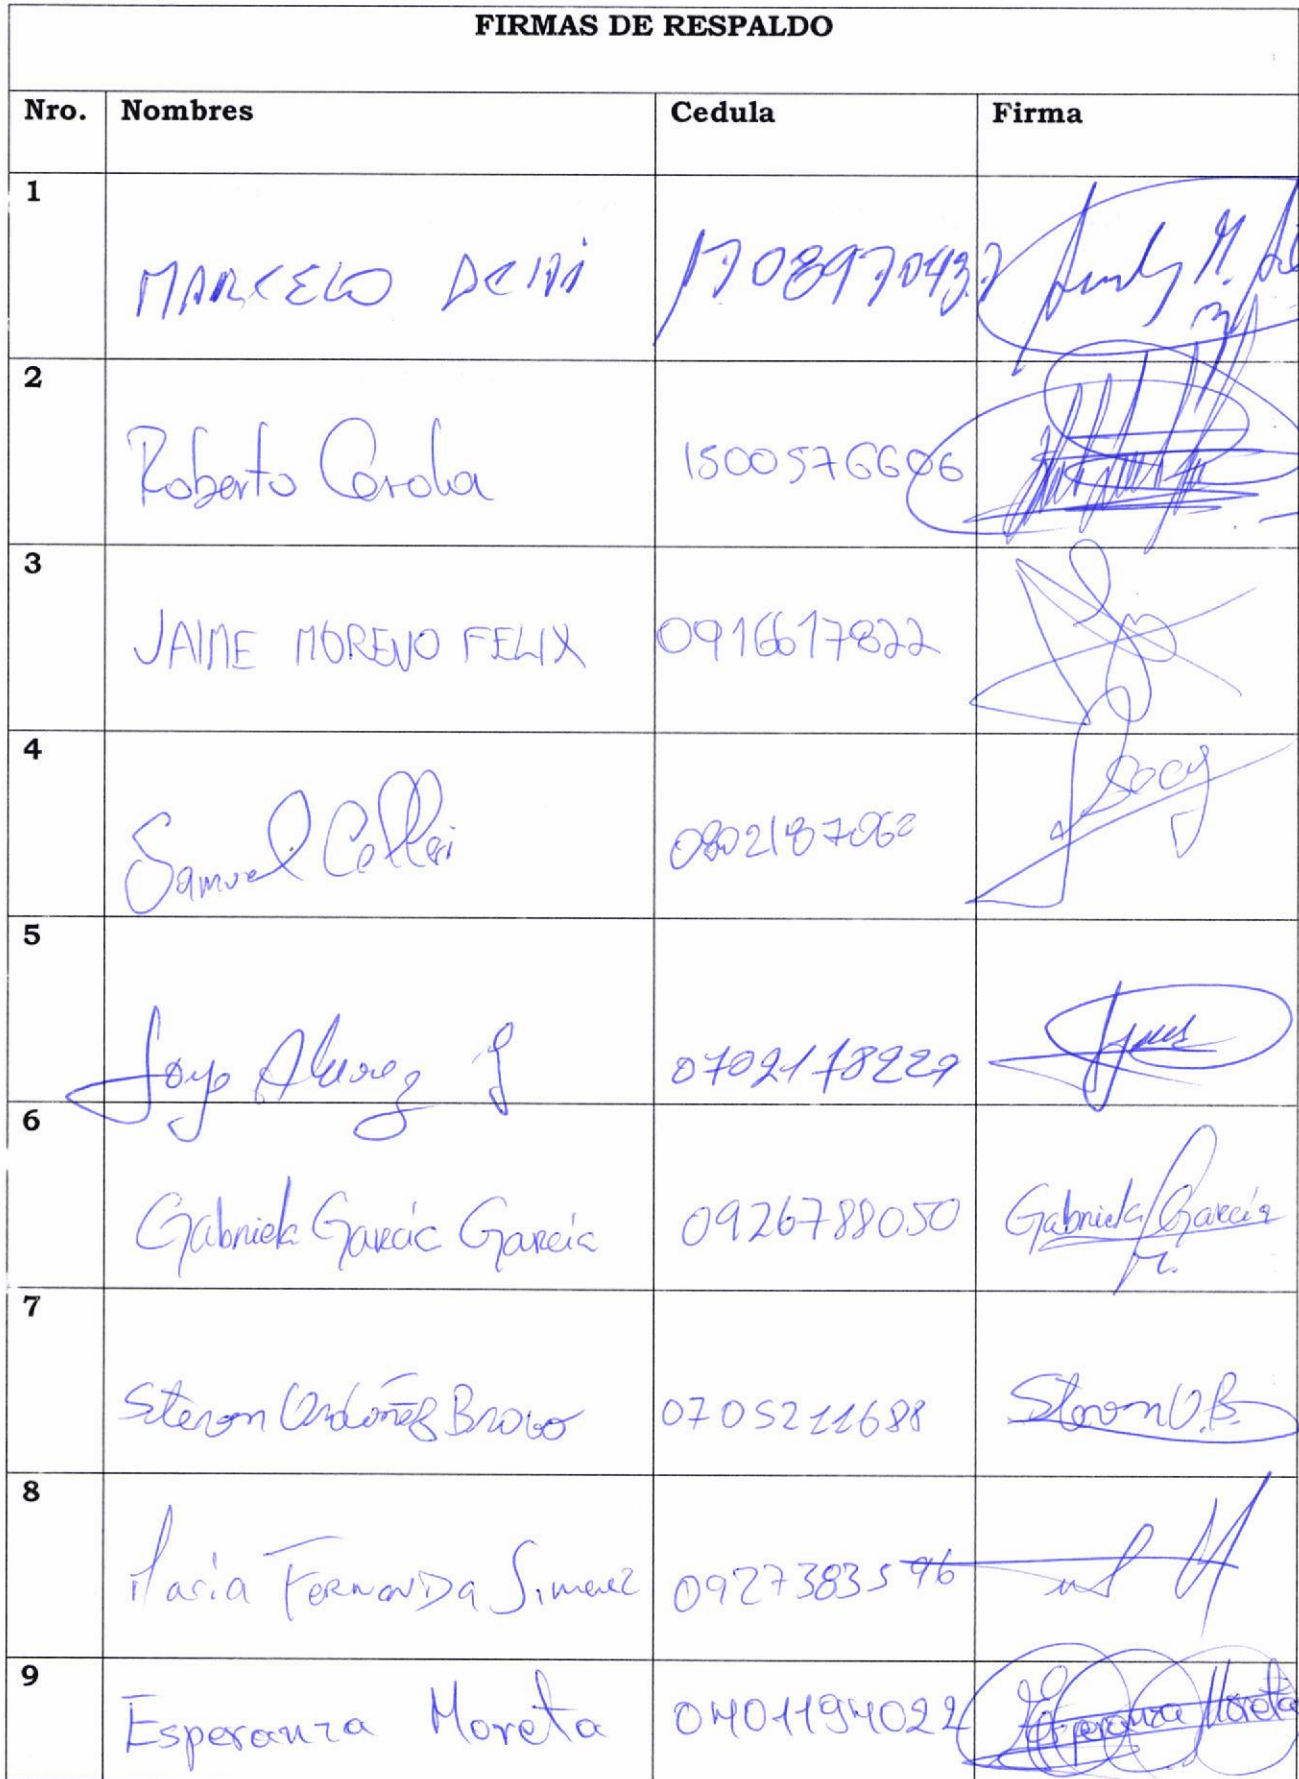 FIRMAS DE RESPALDO
Nro. Nombres Cedula Firma
1 MARCELO 1708970437
2 Roberto 1500576606
3 JAIME MORENO FELIX 0916617822
4 Samuel Celleri 0802187062
5 Alvarez 0702178229
6 Gabriela García García 0926788050 Gabriela García
7 Steven Ordoñez Bravo 0705211688 Steven O.B.
8 Maria Fernanda Jimenez 0927383596
9 Esperanza Moreta 0401194022 Esperanza Moreta